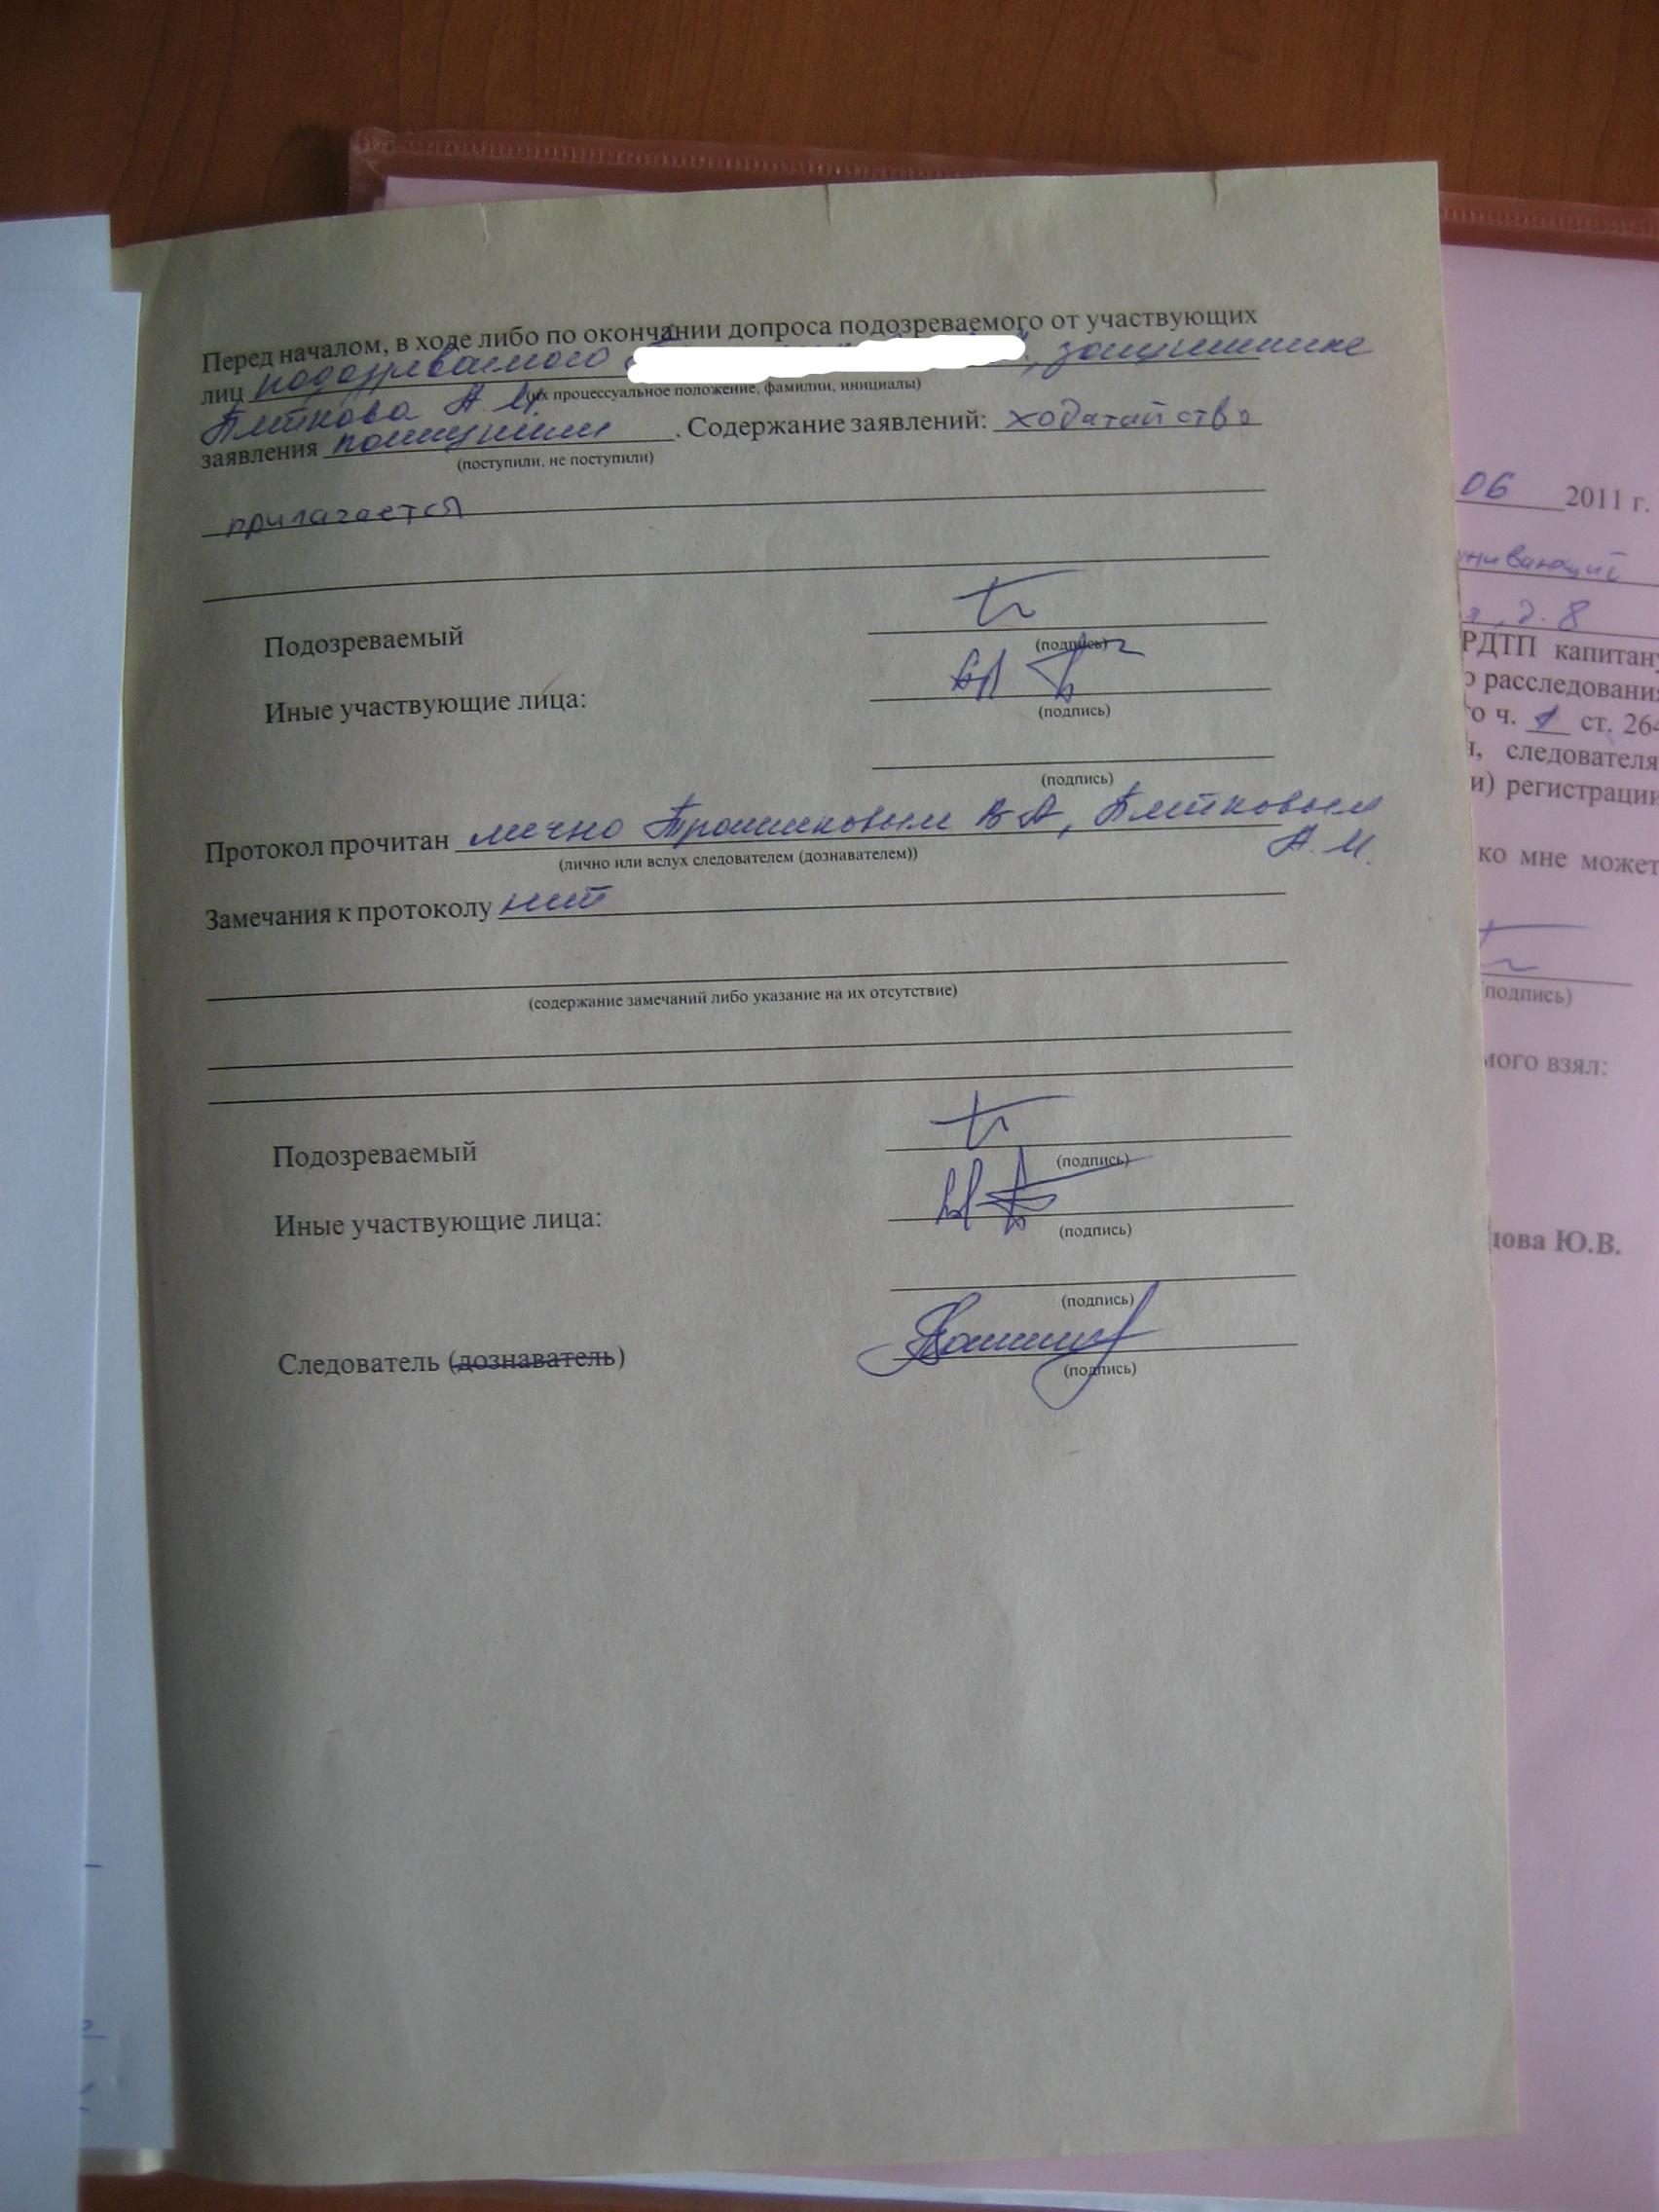 Перед началом, в ходе либо по окончании допроса подозреваемого от участвующих
лиц подозреваемого , защитника
(их процессуальное положение, фамилии, инициалы)
А.М.
заявления поступили . Содержание заявлений: ходатайство
(поступили, не поступили)
прилагается
Подозреваемый
(подпись)
Иные участвующие лица:
(подпись)
(подпись)
Протокол прочитан лично Трошинковым ВА,
А.М.
(лично или вслух следователем (дознавателем))
Замечания к протоколу нет
(содержание замечаний либо указание на их отсутствие)
Подозреваемый
(подпись)
Иные участвующие лица:
(подпись)
(подпись)
Следователь (дознаватель)
(подпись)
06 2011 г.
живающий
д. 8
РДТП капитану
о расследования
го ч. 1 ст. 264
следователя
и) регистрации
ко мне может
подпись)
мого взял:
дова Ю.В.